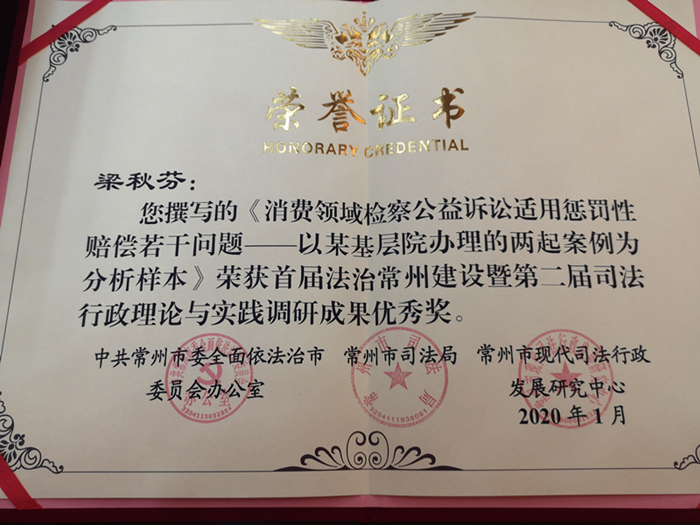 荣誉证书
HONORARY CREDENTIAL
梁秋芬：
您撰写的《消费领域检察公益诉讼适用惩罚性
赔偿若干问题——以某基层院办理的两起案例为
分析样本》荣获首届法治常州建设暨第二届司法
行政理论与实践调研成果优秀奖。
中共常州市委全面依法治市 常州市司法局 常州市现代司法行政
委员会办公室 发展研究中心
2020 年 1 月
常州市司法局